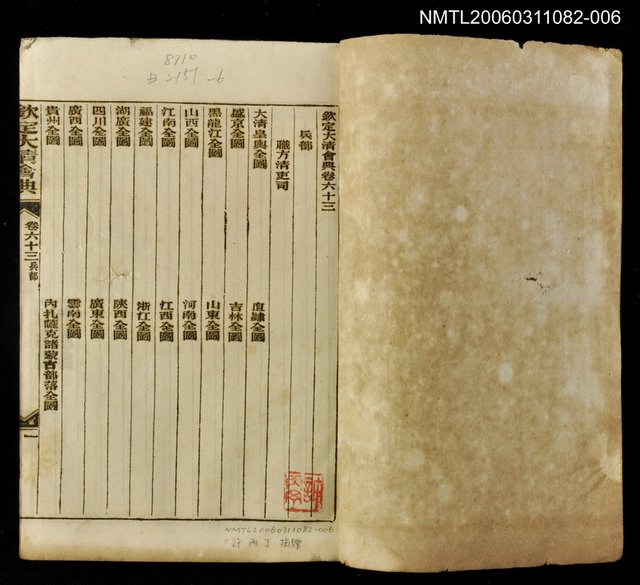 NMTL20060311082-006
8710
2151-6
欽定大清會典卷六十三
兵部
職方清吏司
大清皇輿全圖
直隸全圖
盛京全圖
吉林全圖
黑龍江全圖
山東全圖
山西全圖
河南全圖
江南全圖
江西全圖
福建全圖
浙江全圖
湖廣全圖
陝西全圖
四川全圖
廣東全圖
廣西全圖
雲南全圖
貴州全圖
內扎薩克諸蒙古部落全圖
欽定大清會典
卷六十三 兵部
一
NMTL20060311082-006
許丙丁 捐贈